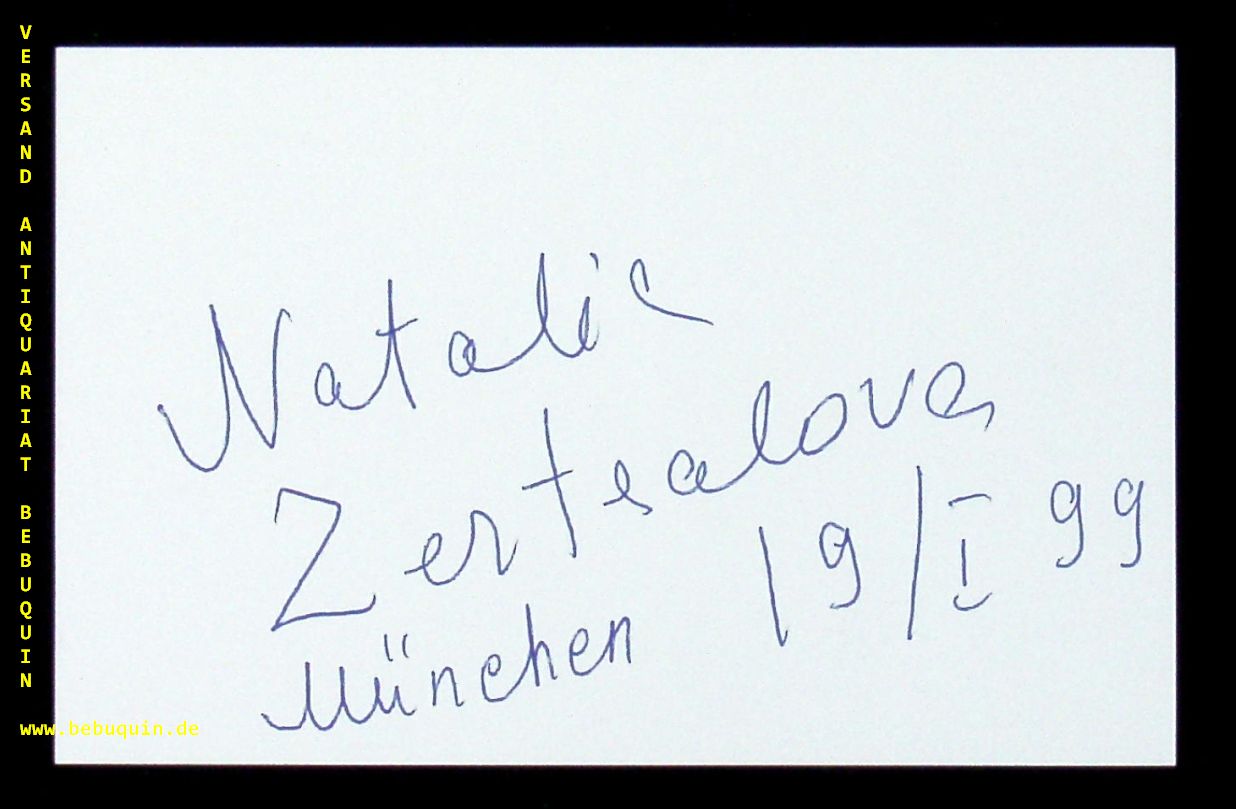 VERSAND ANTIQUARIAT BEBUQUIN
www.bebuquin.de
Natalia
Zertsalova
München 19/I 99